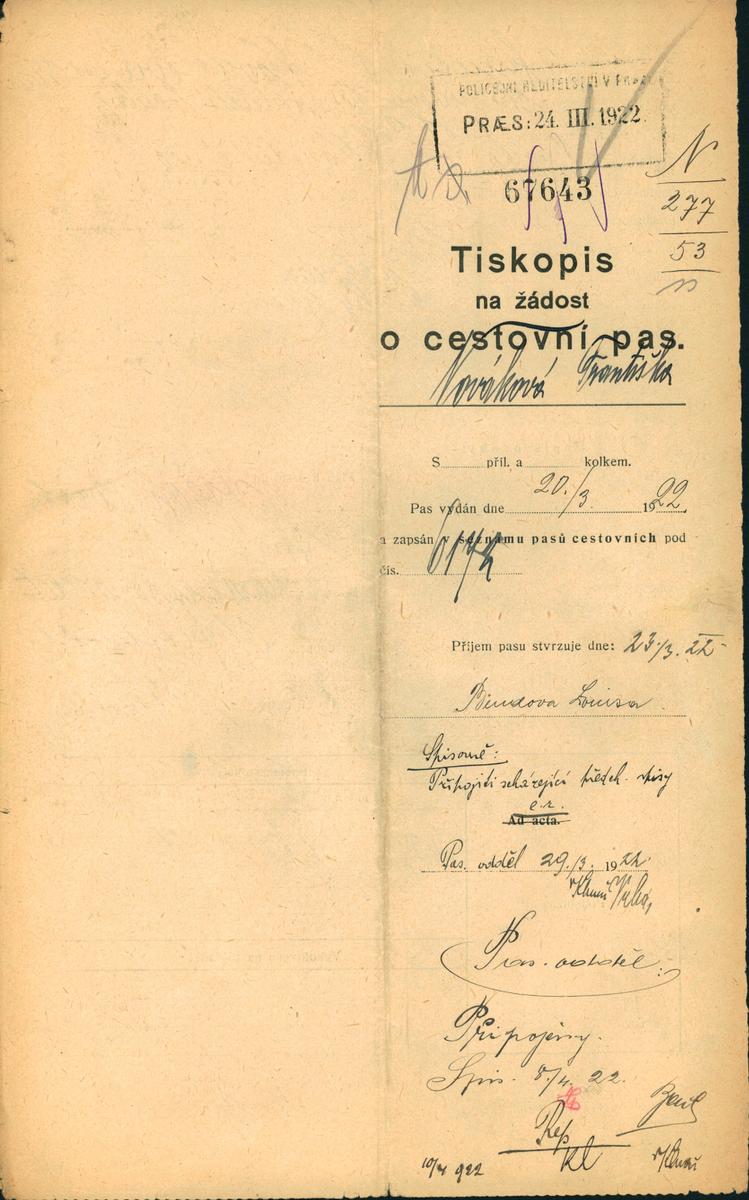 POLICEJNÍ ŘEDITELSTVÍ V PRAZE
PRÆS: 24. III. 1922.
67643
N
277
53
n
Tiskopis
na žádost
o cestovní pas.
Nováková Františka
S příl. a kolkem.
Pas vydán dne 20./3. 1922.
a zapsán v seznamu pasů cestovních pod
čís.
Příjem pasu stvrzuje dne: 23./3. 22
Bendova Louisa
Spisovně:
Připojiti scházející předch. spisy
Ad acta.
Pas. odděl 29./3. 1922.
Pas. odděl.
Připojeny.
Spis. 8/4. 22.
10/4 922